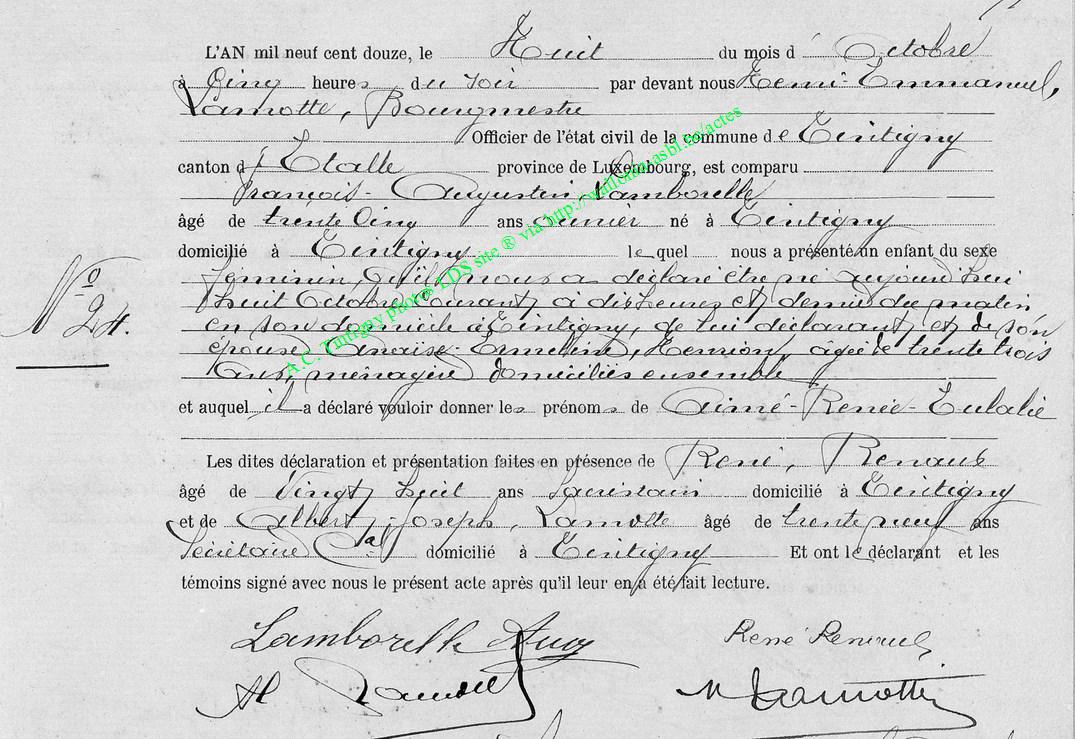 L'AN mil neuf cent douze, le Huit du mois d'Octobre
à Cinq heures du soir par devant nous Remi-Emmanuel,
Lamotte, Bourgmestre
Officier de l'état civil de la commune de Tintigny
canton d'Etalle province de Luxembourg, est comparu
François-Augustin Lamborelle
âgé de trente Cinq ans ouvrier né à Tintigny
domicilié à Tintigny lequel nous a présenté un enfant du sexe
féminin, qu'il nous a déclaré être né aujourd'hui
huit Octobre courant à dix heures et demie du matin
N° 24.
en son domicile à Tintigny, de lui déclarant et de son
épouse Henrion, âgée de trente trois
ans, ménagère domiciliés ensemble
et auquel il a déclaré vouloir donner les prénoms de Aimé-Renée-Eulalie
Les dites déclaration et présentation faites en présence de René, Renaud
âgé de Vingt huit ans Sacristain domicilié à Tintigny
et de Albert-Joseph, Lamotte âgé de trente neuf ans
Secrétaire Cal domicilié à Tintigny Et ont le déclarant et les
témoins signé avec nous le présent acte après qu'il leur en a été fait lecture.
Lamborelle Aug René Renaud
Lamotte
A.C. Tintigny photos LDS site ® via http://wallonia.asbl.be/actes